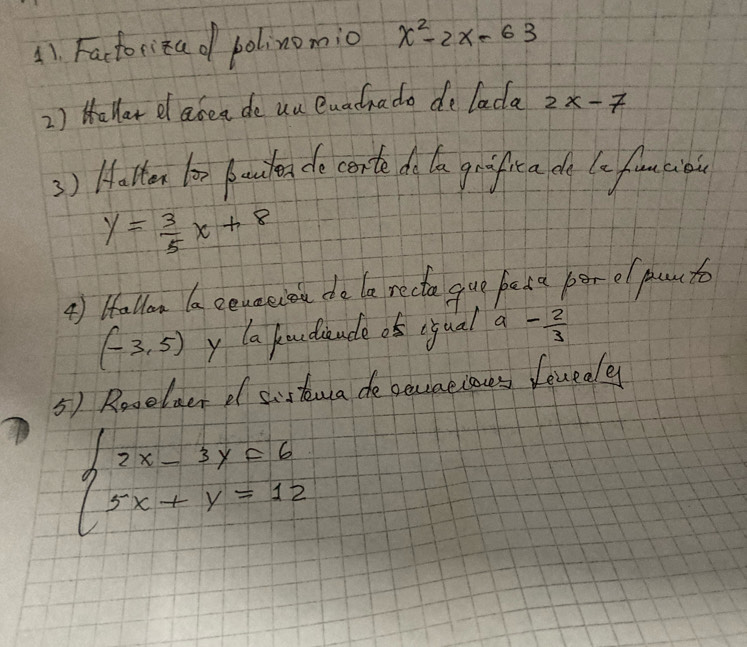 1). Factoriza el polinomio x² - 2x - 63
2) Hallar el área de un Cuadrado de lado 2x - 7
3) Hallar los puntos de corte de la gráfica de la función
y = 3/5 x + 8
4) Hallar la ecuación de la recta que pasa por el punto
(-3, 5) y la pendiende es igual a - 2/3
5) Resolver el sistema de ecuaciones lineales
2x - 3y = 6
5x + y = 12